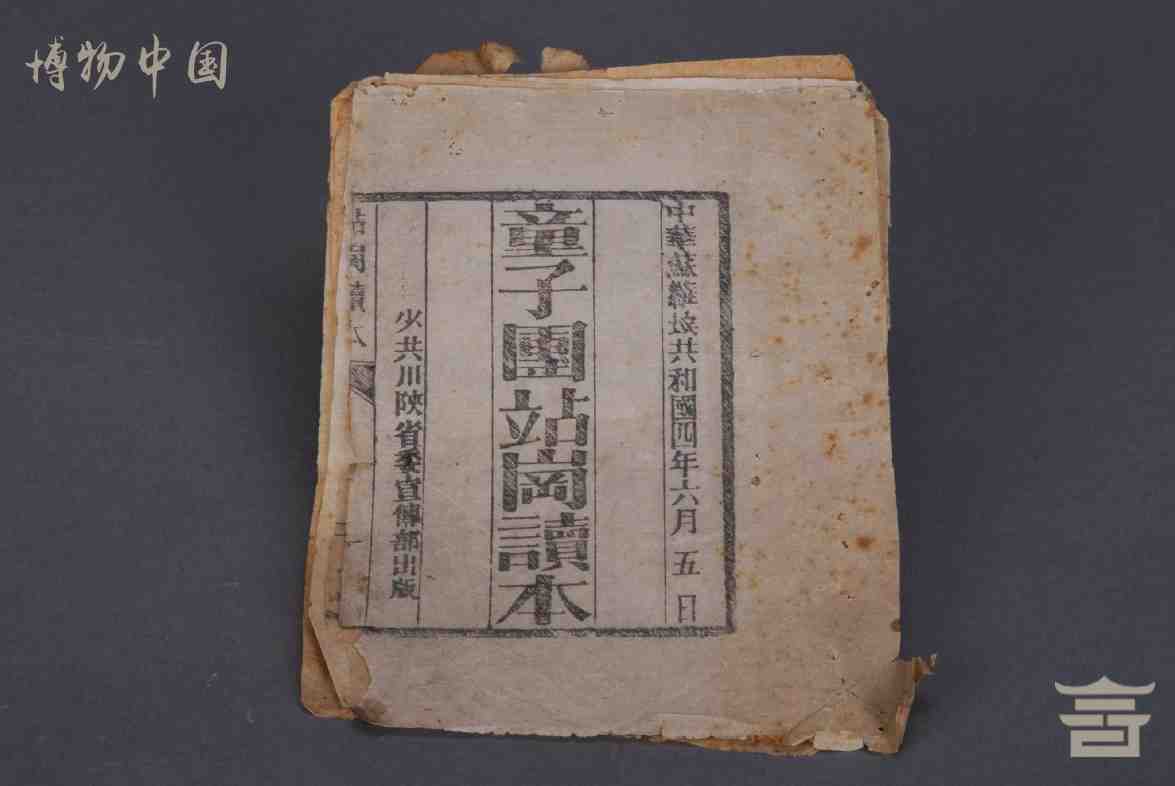 博物中国
中華蘇維埃共和國四年六月五日
童子團站崗讀本
少共川陝省委宣傳部出版
站崗讀本